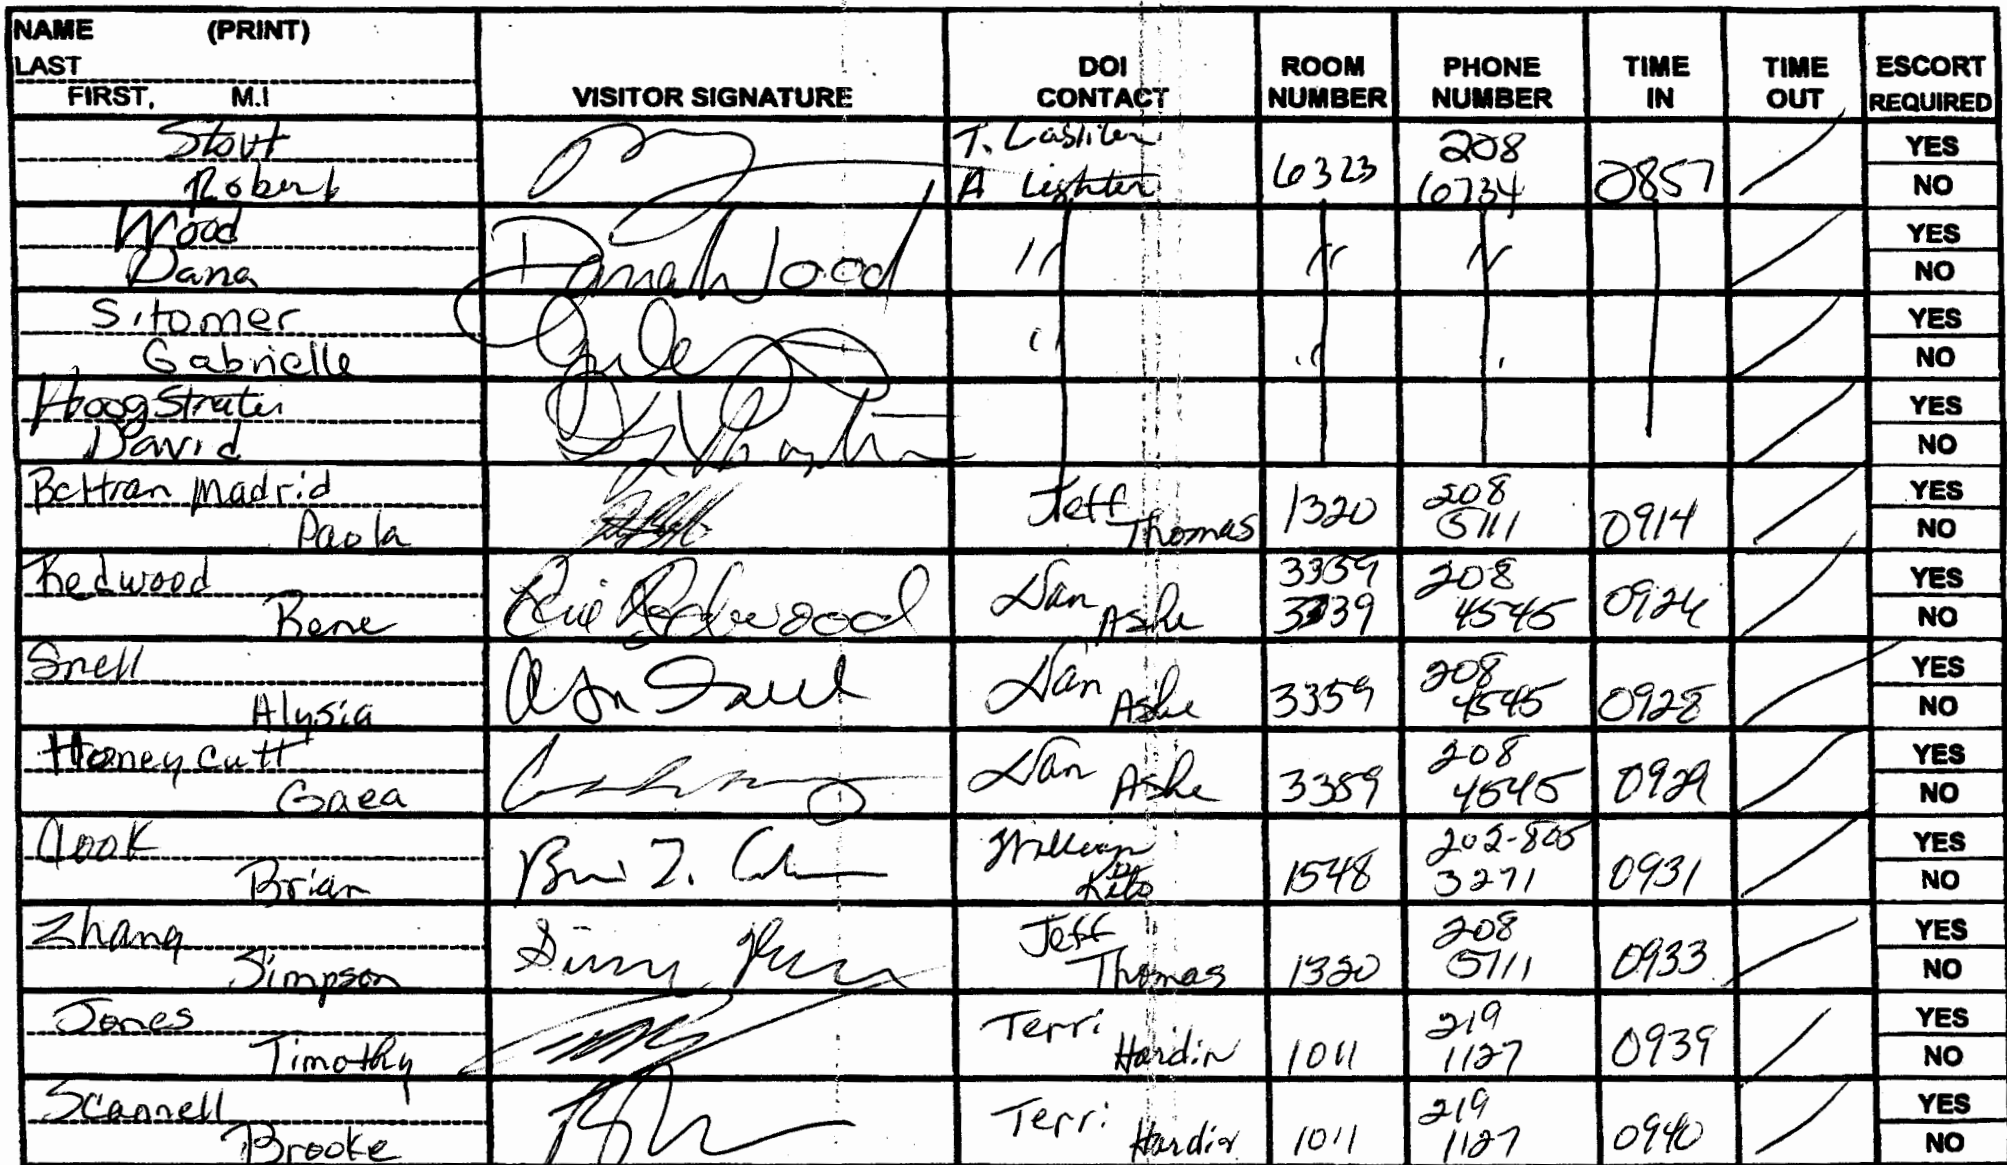 NAME (PRINT)
LAST
FIRST, M.I
VISITOR SIGNATURE
DOI
CONTACT
ROOM
NUMBER
PHONE
NUMBER
TIME
IN
TIME
OUT
ESCORT
REQUIRED
Stout
Robert
T.
A Lighter
6323
208
6734
0857
YES
NO
Wood
Dana
Dana Wood
"
"
"
YES
NO
Sitomer
Gabrielle
"
"
YES
NO
Hoogstraten
David
YES
NO
Beltran Madrid
Paola
Jeff
Thomas
1320
208
5111
0914
YES
NO
Redwood
Rene
Redwood
Dan
Ashe
3359
3339
208
4545
0926
YES
NO
Snell
Alysia
Dan
Ashe
3359
208
4545
0928
YES
NO
Honeycutt
Gaea
Dan
Ashe
3359
208
4545
0929
YES
NO
Cook
Brian
William
1548
202-805
3271
0931
YES
NO
Zhang
Simpson
Jeff
Thomas
1320
208
5111
0933
YES
NO
Jones
Timothy
Terri
Hardin
1011
219
1127
0939
YES
NO
Scannell
Brooke
Terri
Hardin
1011
219
1127
0940
YES
NO